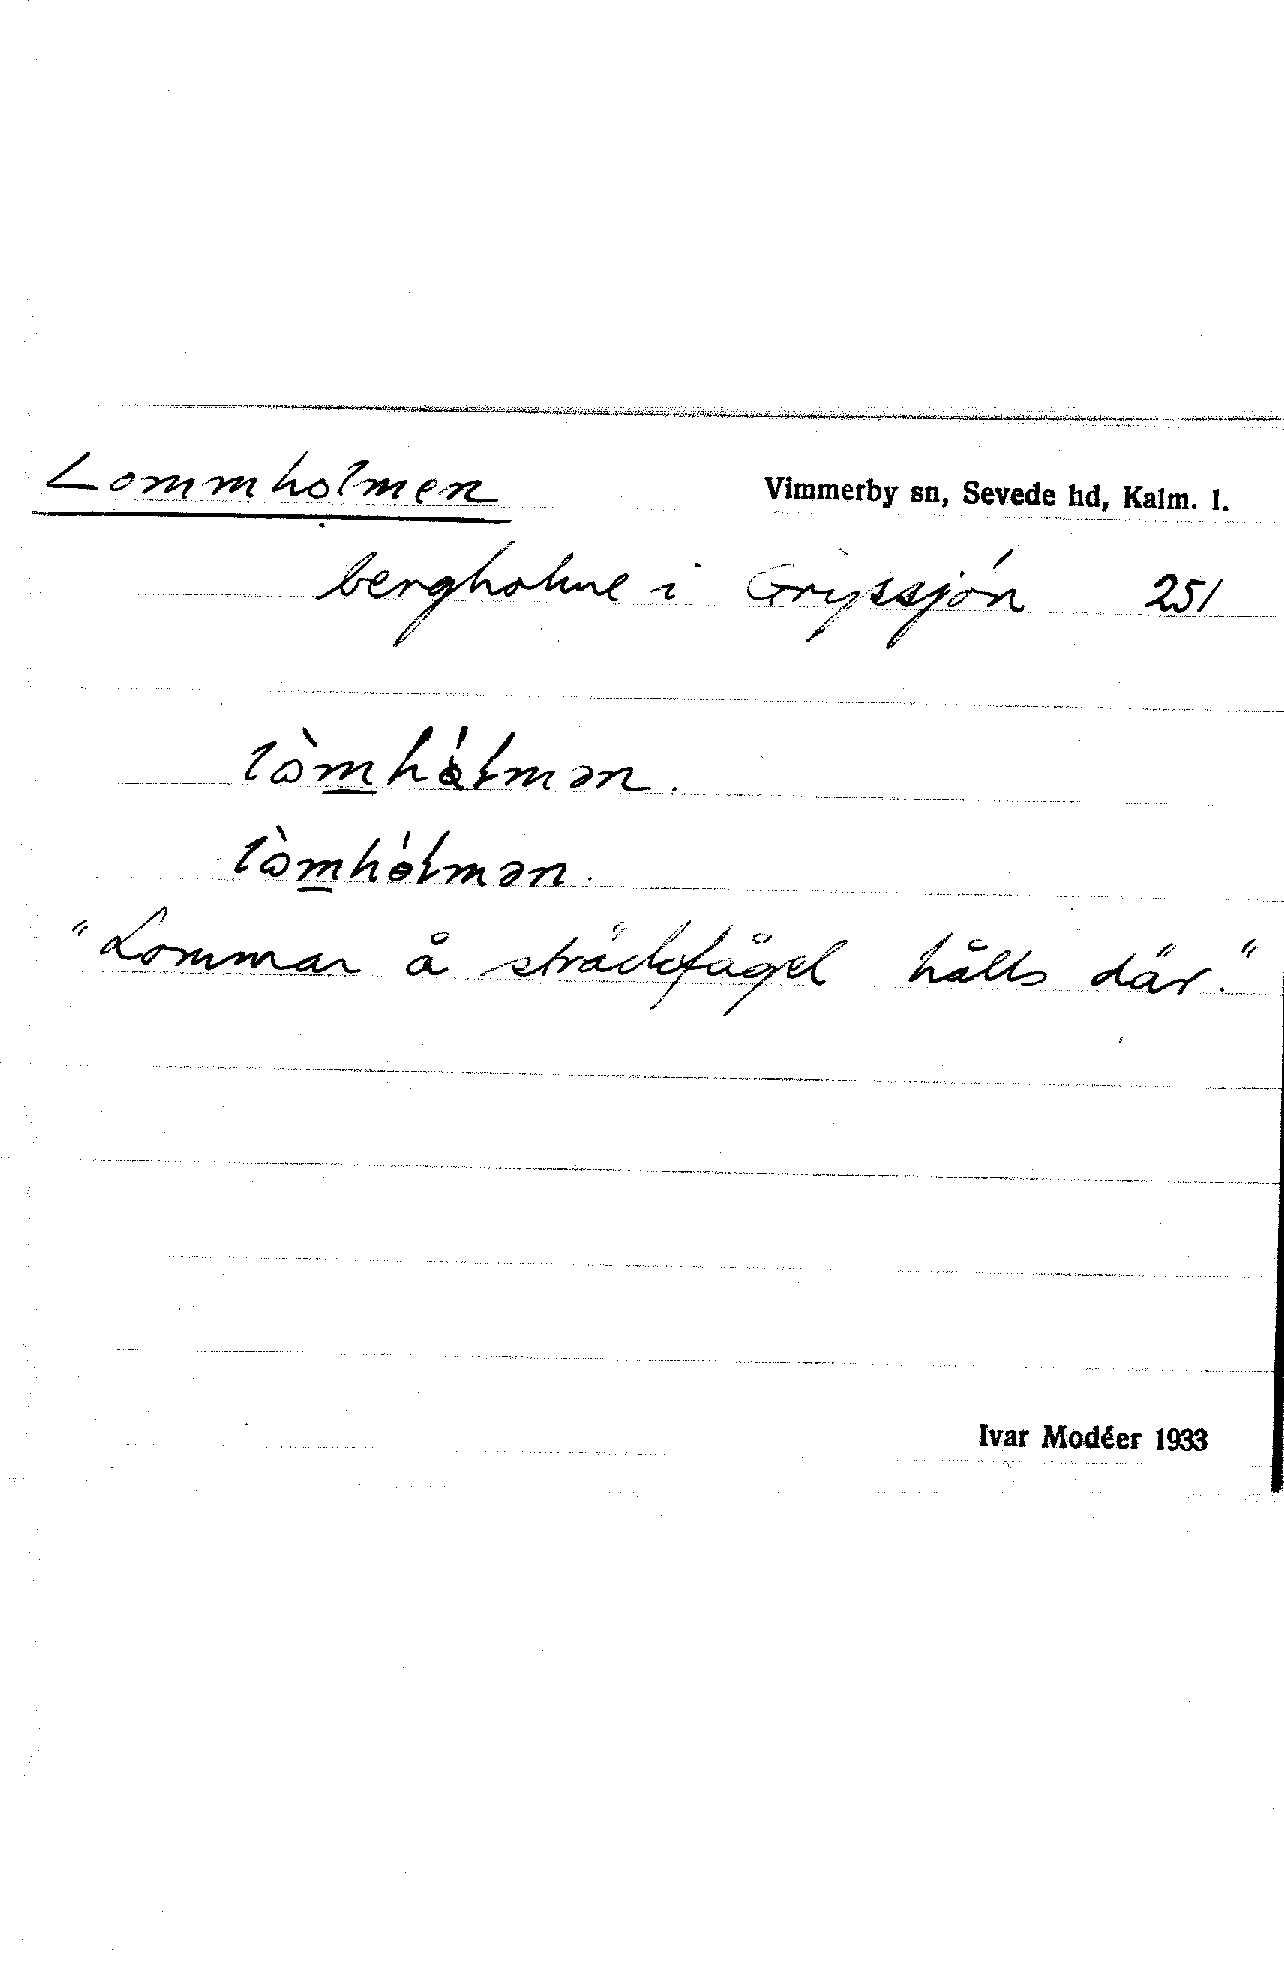 Lommholmen Vimmerby sn, Sevede hd, Kalm. l.
bergholme i Gryssjön 251
lòmhólmən.
lòmhólmən.
"Lommar å strädefågel hålls där."
Ivar Modéer 1933